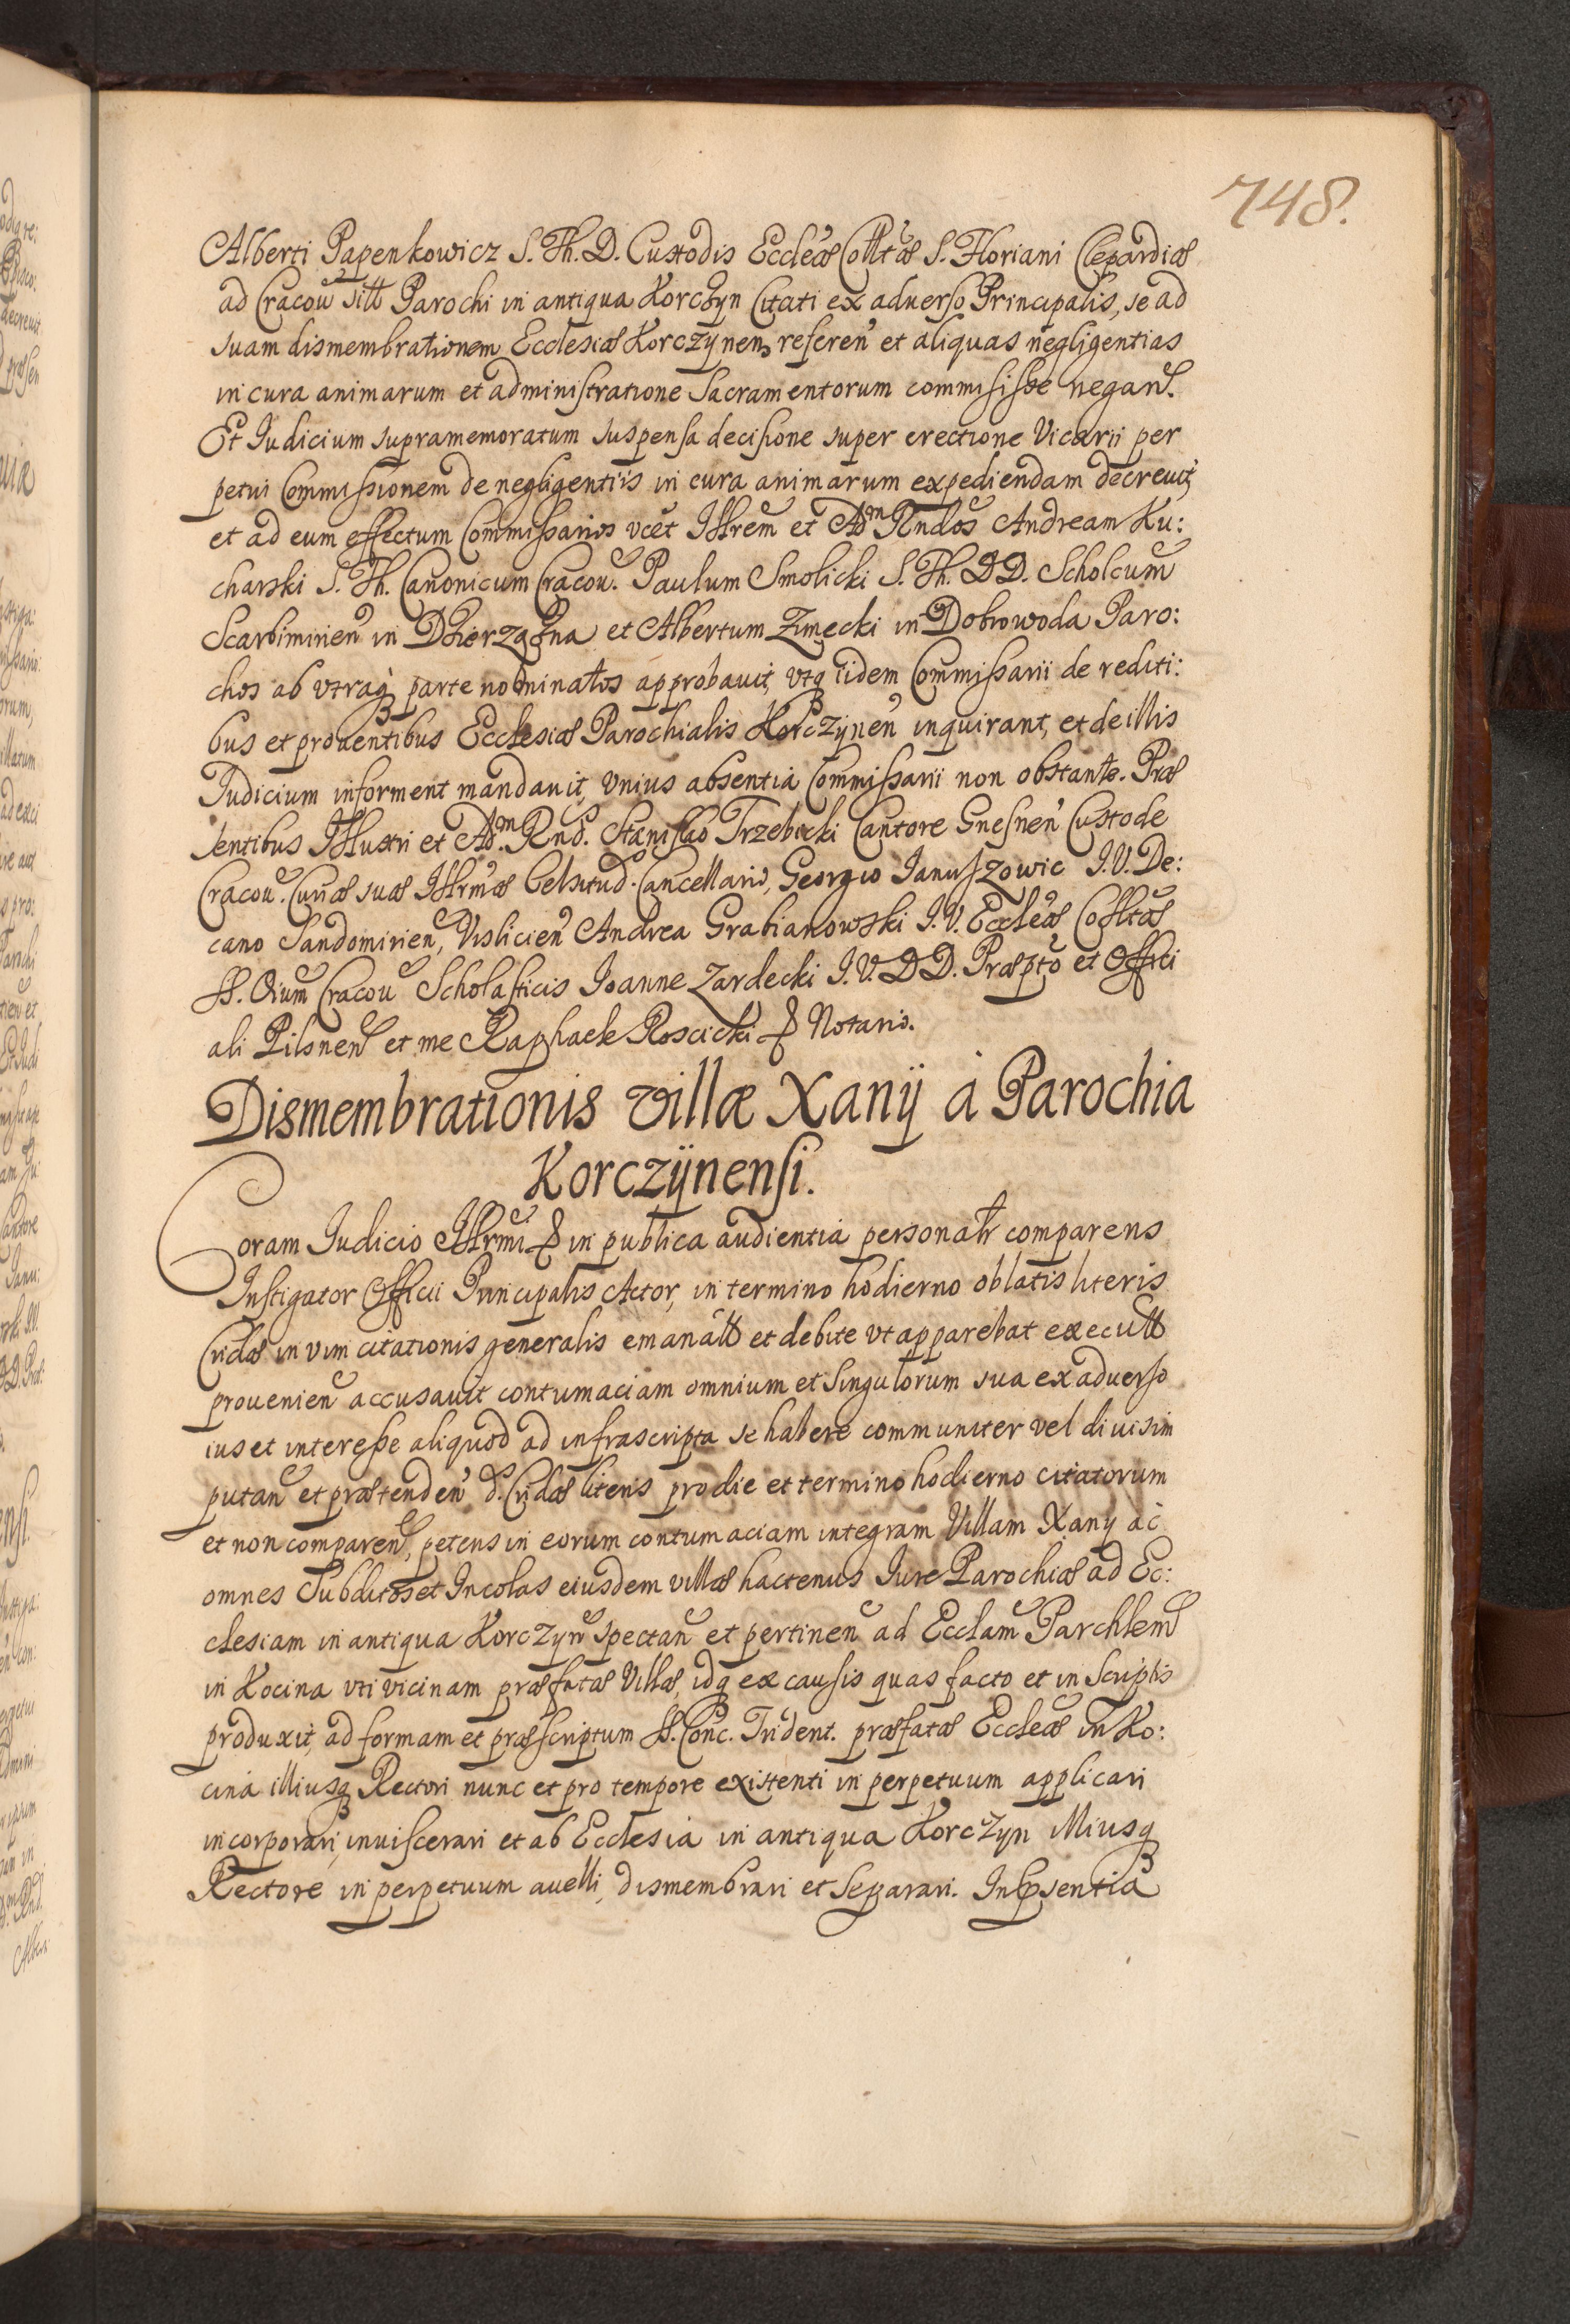 748.
Alberti Papenkowicz S. Th. D. Custodis Eccleæ Colltæ S. Floriani Clepardiæ
ad Cracou sitt Parochi in antiqua Korczyn Citati ex aduerso Principalis, se ad
suam dismembrationem Ecclesiæ Korczynen referen et aliquas negligentias
in cura animarum et administratione Sacramentorum commisisse negan.
Et Iudicium supramemoratum suspensa decisione super erectione Vicarii per
petui Commissionem de negligentiis in cura animarum expediendam decreuit,
et ad eum effectum Commissarios vcet Illrem et Adm Rndos Andream Ku:
charski S. Th. Canonicum Cracou. Paulum Smolicki S. Th. DD. Scholcum
Scarbimirien in Dzierzążna et Albertum Zimecki in Dobrowoda Paro:
chos ab vtraq parte nominatos approbauit, vtq iidem Commissarii de rediti:
bus et prouentibus Ecclesiæ Parochialis Korczynen inquirant, et de illis
Iudicium informent mandauit, vnius absentia Commissarii non obstante. Præ
sentibus Illustri et Adm. Rnd. Stanislao Trzebicki Cantore Gnesnen Custode
Cracou. Curiæ suæ Illrmæ Celsitud. Cancellario, Georgio Ianuszowic I.V. De:
cano Sandomirien, Vislicien Andrea Grabianowski I.V. Eccleæ Colltæ
SS. Oium Cracou Scholasticis Ioanne Zardecki I.V. DD. Præpto et Offici
ali Pilsnen et me Raphaele Roscicki & Notario.
Dismembrationis villæ Xanÿ à Parochia
Korczÿnensi.
Coram Iudicio Illrmi & in publica audientia personalr comparens
Instigator Officii Principalis Actor, in termino hodierno oblatis literis
Cridæ in vim citationis generalis emanatt et debite vt apparebat executt
prouenien accusauit contumaciam omnium et singulorum sua ex aduerso
ius et interesse aliquod ad infrascripta se habere communiter vel diuisim
putan et prætenden d. Cridæ literis pro die et termino hodierno citatorum
et non comparen, petens in eorum contumaciam integram Villam Xany ac
omnes Subditos et Incolas eiusdem villæ hactenus Iure Parochiæ ad Ec:
clesiam in antiqua Korczyn spectan et pertinen ad Ecclam Parchlem
in Kocina vti vicinam præfatæ Villæ, idq ex causis quas facto et in Scriptis
produxit, ad formam et præscriptum SS. Conc. Trident. præfatæ Eccleæ in Ko:
cina illiusq Rectori nunc et pro tempore existenti in perpetuum applicari
incorporari, inuiscerari et ab Ecclesia in antiqua Korczyn illiusq
Rectore in perpetuum auelli, dismembrari et separari. In psentia